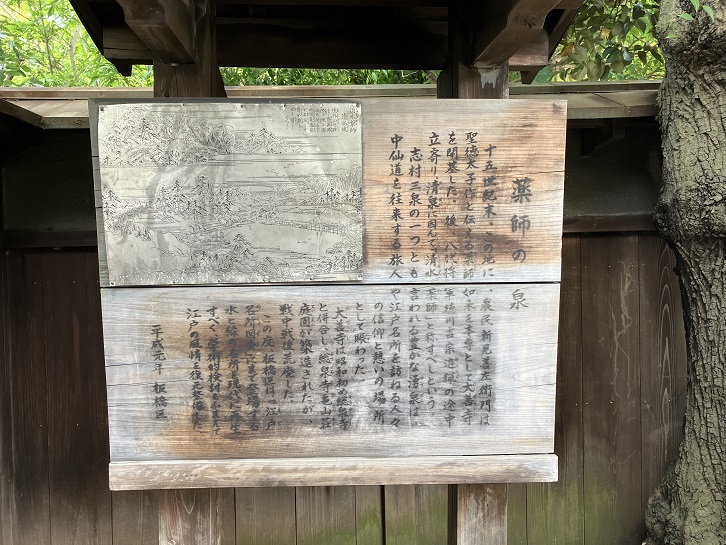 薬師の泉
十五世紀末、この地に、農民、新見善左衛門は
聖徳太子作と伝える薬師如来を本尊とし大善寺
を開基した。後、八代将軍徳川吉宗遊猟の途中
立寄り清泉に因んで清水薬師と称すべしという。
志村三泉の一つとも言われる豊かな湧泉は、
中仙道を往来する旅人や江戸名所を訪ねる人々
の信仰と憩いの場所
として賑わった。
大善寺は昭和初め総泉寺
と併合し、総泉寺亀山荘
庭園が築造されたが、
戦中戦後荒廃した。
この度、板橋区は、江戸
名所図会に
水と緑の名所を現代に
すべく、学術的検討を加えて
江戸の風情を復元整備した。
平成元年 板橋区